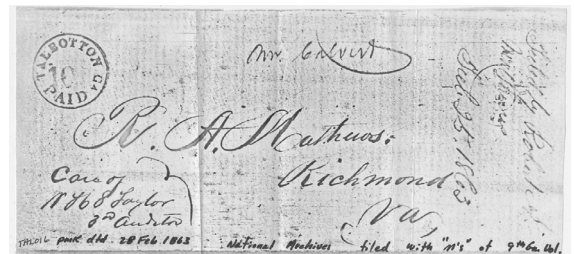 TALBOTTON Ga
10
PAID
Mr Calvert
R. A. Mathews:
Richmond
Va,
Care of
Taylor
3rd Auditor
Feb 25th 1863
TALO16 pmk dtd. 28 Feb. 1863 National Archives filed with "M's" of 9th Ga. Vol.